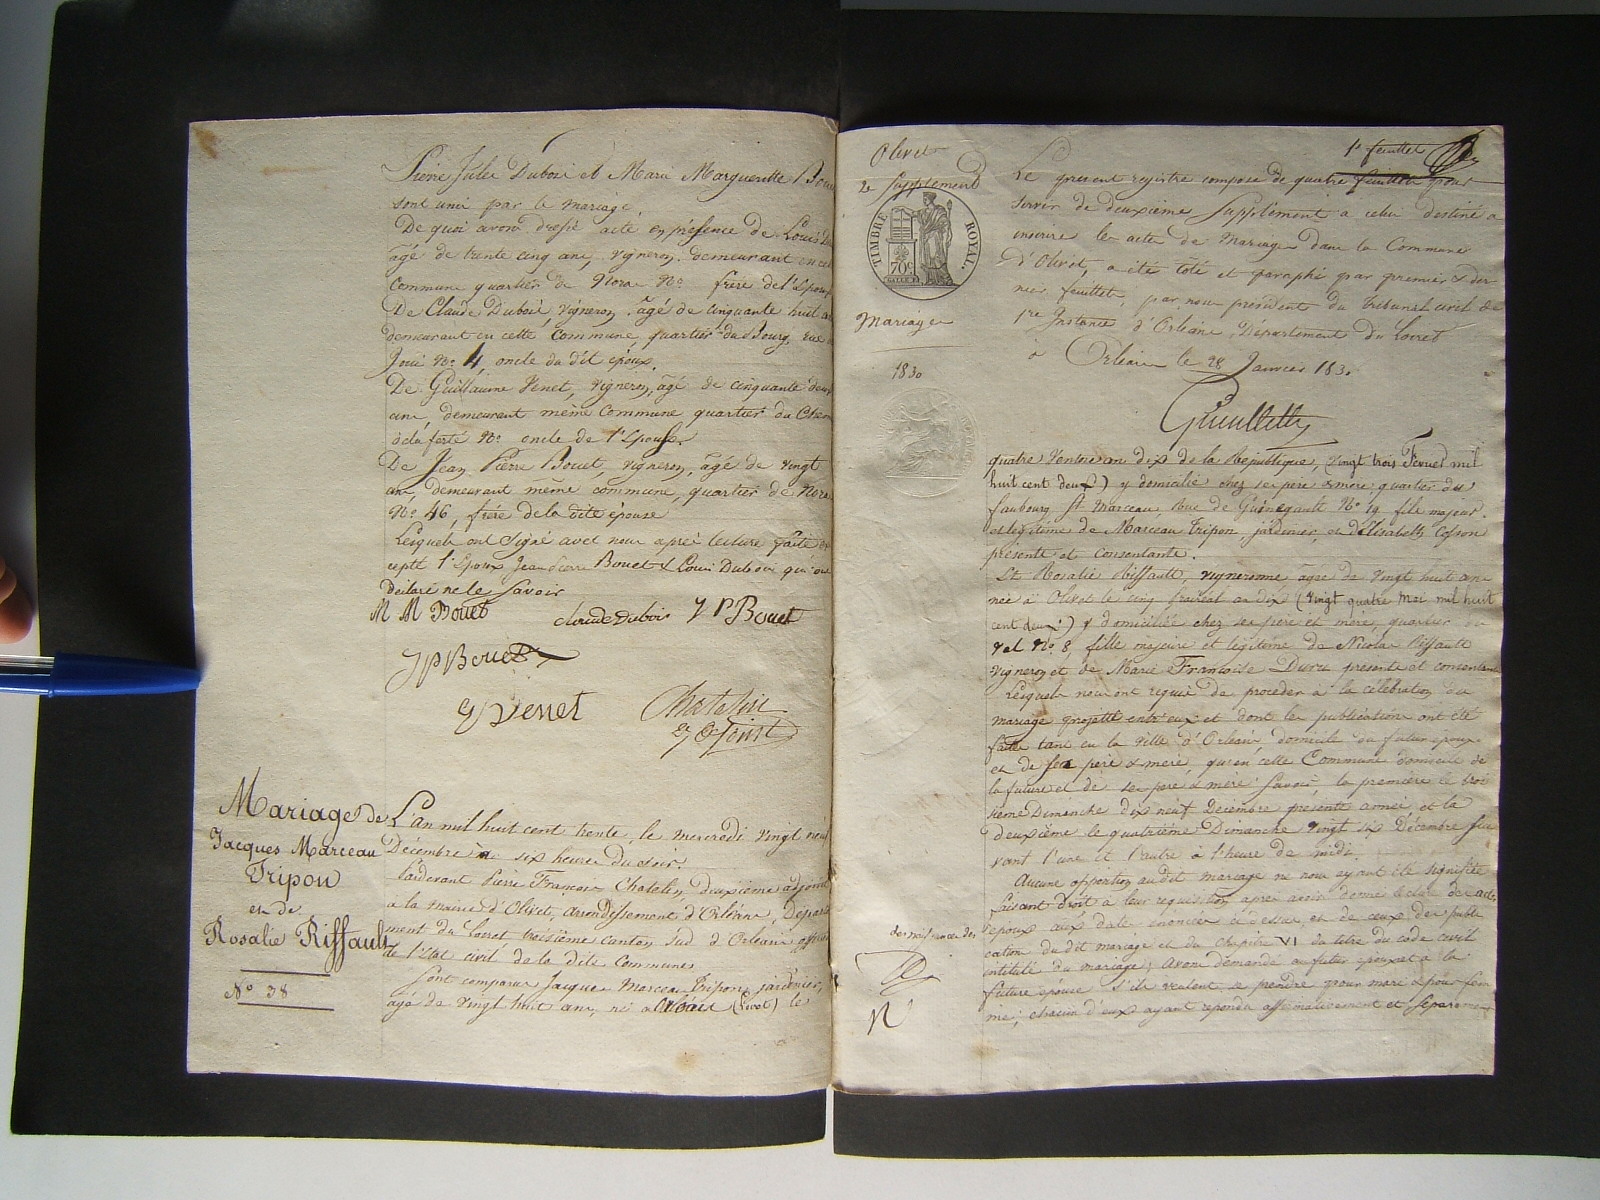 Pierre Jules Dubois et Marie Margueritte Bouet
sont unis par le mariage
De quoi avons dressé acte en présence de Louis
âgé de trente cinq ans, vigneron, demeurant en cette
commune quartier de Noras No. frère de l'Epoux
De Claude Dubois, vigneron, âgé de cinquante huit ans
demeurant en cette commune, quartier du Bourg, rue
No. 4, oncle du dit époux.
De Guillaume Venet, vigneron, âgé de cinquante deux
ans, demeurant même commune quartier du
à la ferté No. oncle de l'Epouse.
De Jean Pierre Bouet, vigneron, âgé de vingt
ans, demeurant même commune, quartier de Noras
No. 46, frère de la dite épouse
Lesquels ont signé avec nous après lecture faite ex
cepté l'Epoux Jean Pierre Bouet & Louis Dubois qui ont
déclaré ne le savoir
M M Bouet claude Dubois J P Bouet
J P Bouet
G Venet Chatelin
adjoint
Mariage de
Jacques Marceau
Tripon
et de
Rosalie Riffault
No 38
L'an mil huit cent trente, le mercredi vingt neuf
Décembre six heures du soir,
Pardevant Pierre François Chatelin, deuxième adjoint
à la mairie d'Olivet, arrondissement d'Orléans, départe
ment du Loiret troisième canton sud d'Orléans officier
de l'Etat civil de la dite Commune,
Sont comparus Jacques Marceau Tripon, jardinier,
agé de vingt huit ans, né à Orléans (Loiret) le
Olivet
2e Supplément
TIMBRE ROYAL.
70c
Mariages
1830
1er feuillet
Le présent registre composé de quatre feuillets pour
servir de deuxième Supplément à celui destiné à
inscrire les actes de Mariages dans la Commune
d'Olivet, a été coté et paraphé par premier & der
nier feuillet, par nous président du Tribunal civil de
1re Instance d'Orléans, Département du Loiret
à Orléans le 28 Janvier 1830
quatre Ventose an dix de la République, (vingt trois Fevrier mil
huit cent deux) y domicilié chez ses père & mère, quartier du
faubourg St Marceau, Rue de Guignegault No. 19 fils majeur
et légitime de Marceau Tripon, jardinier, et d'Elisabeth Cosson
présents et consentants.
Et Rosalie Riffault, vigneronne âgée de vingt huit ans
née à Olivet le cinq prairéal an dix (vingt quatre Mai mil huit
cent deux) y domiciliée chez ses père et mère, quartier du
val No. 8, fille majeure et légitime de Nicolas Riffault
vigneron et de Marie Françoise Duru présents et consentants
Lesquels nous ont requis de procéder à la célébration du
mariage projetté entr'eux et dont les publications ont été
faites tant en la ville d'Orléans, domicile du futur époux
et de ses père & mère, qu'en cette Commune domicile de
la future et de ses père & mère, savoir, la première le troi
sième Dimanche dix neuf Décembre présente année et la
deuxième le quatrième Dimanche vingt six Décembre sui
vant l'une et l'autre à l'heure de midi.
Aucune opposition au dit mariage ne nous ayant été signifiée
faisant droit à leur réquisition, après avoir donné lecture des actes
des naissances des époux aux dates énoncées ci dessus, et de ceux des publi
cations du dit mariage et du chapitre VI du titre du code civil
intitulé du mariage, avons demandé au futur époux et à la
future épouse s'ils veulent se prendre pour mari & pour fem
me; chacun d'eux ayant répondu affirmativement et séparément
N